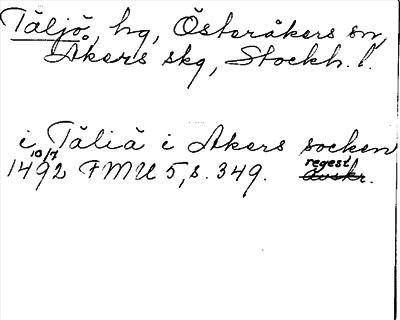 Täljö, hg, Österåkers sn,
Åkers skg, Stockh. l.
i Täliä i Akers socken
10/7 regest
1492 FMU 5, s. 349. Avskr.